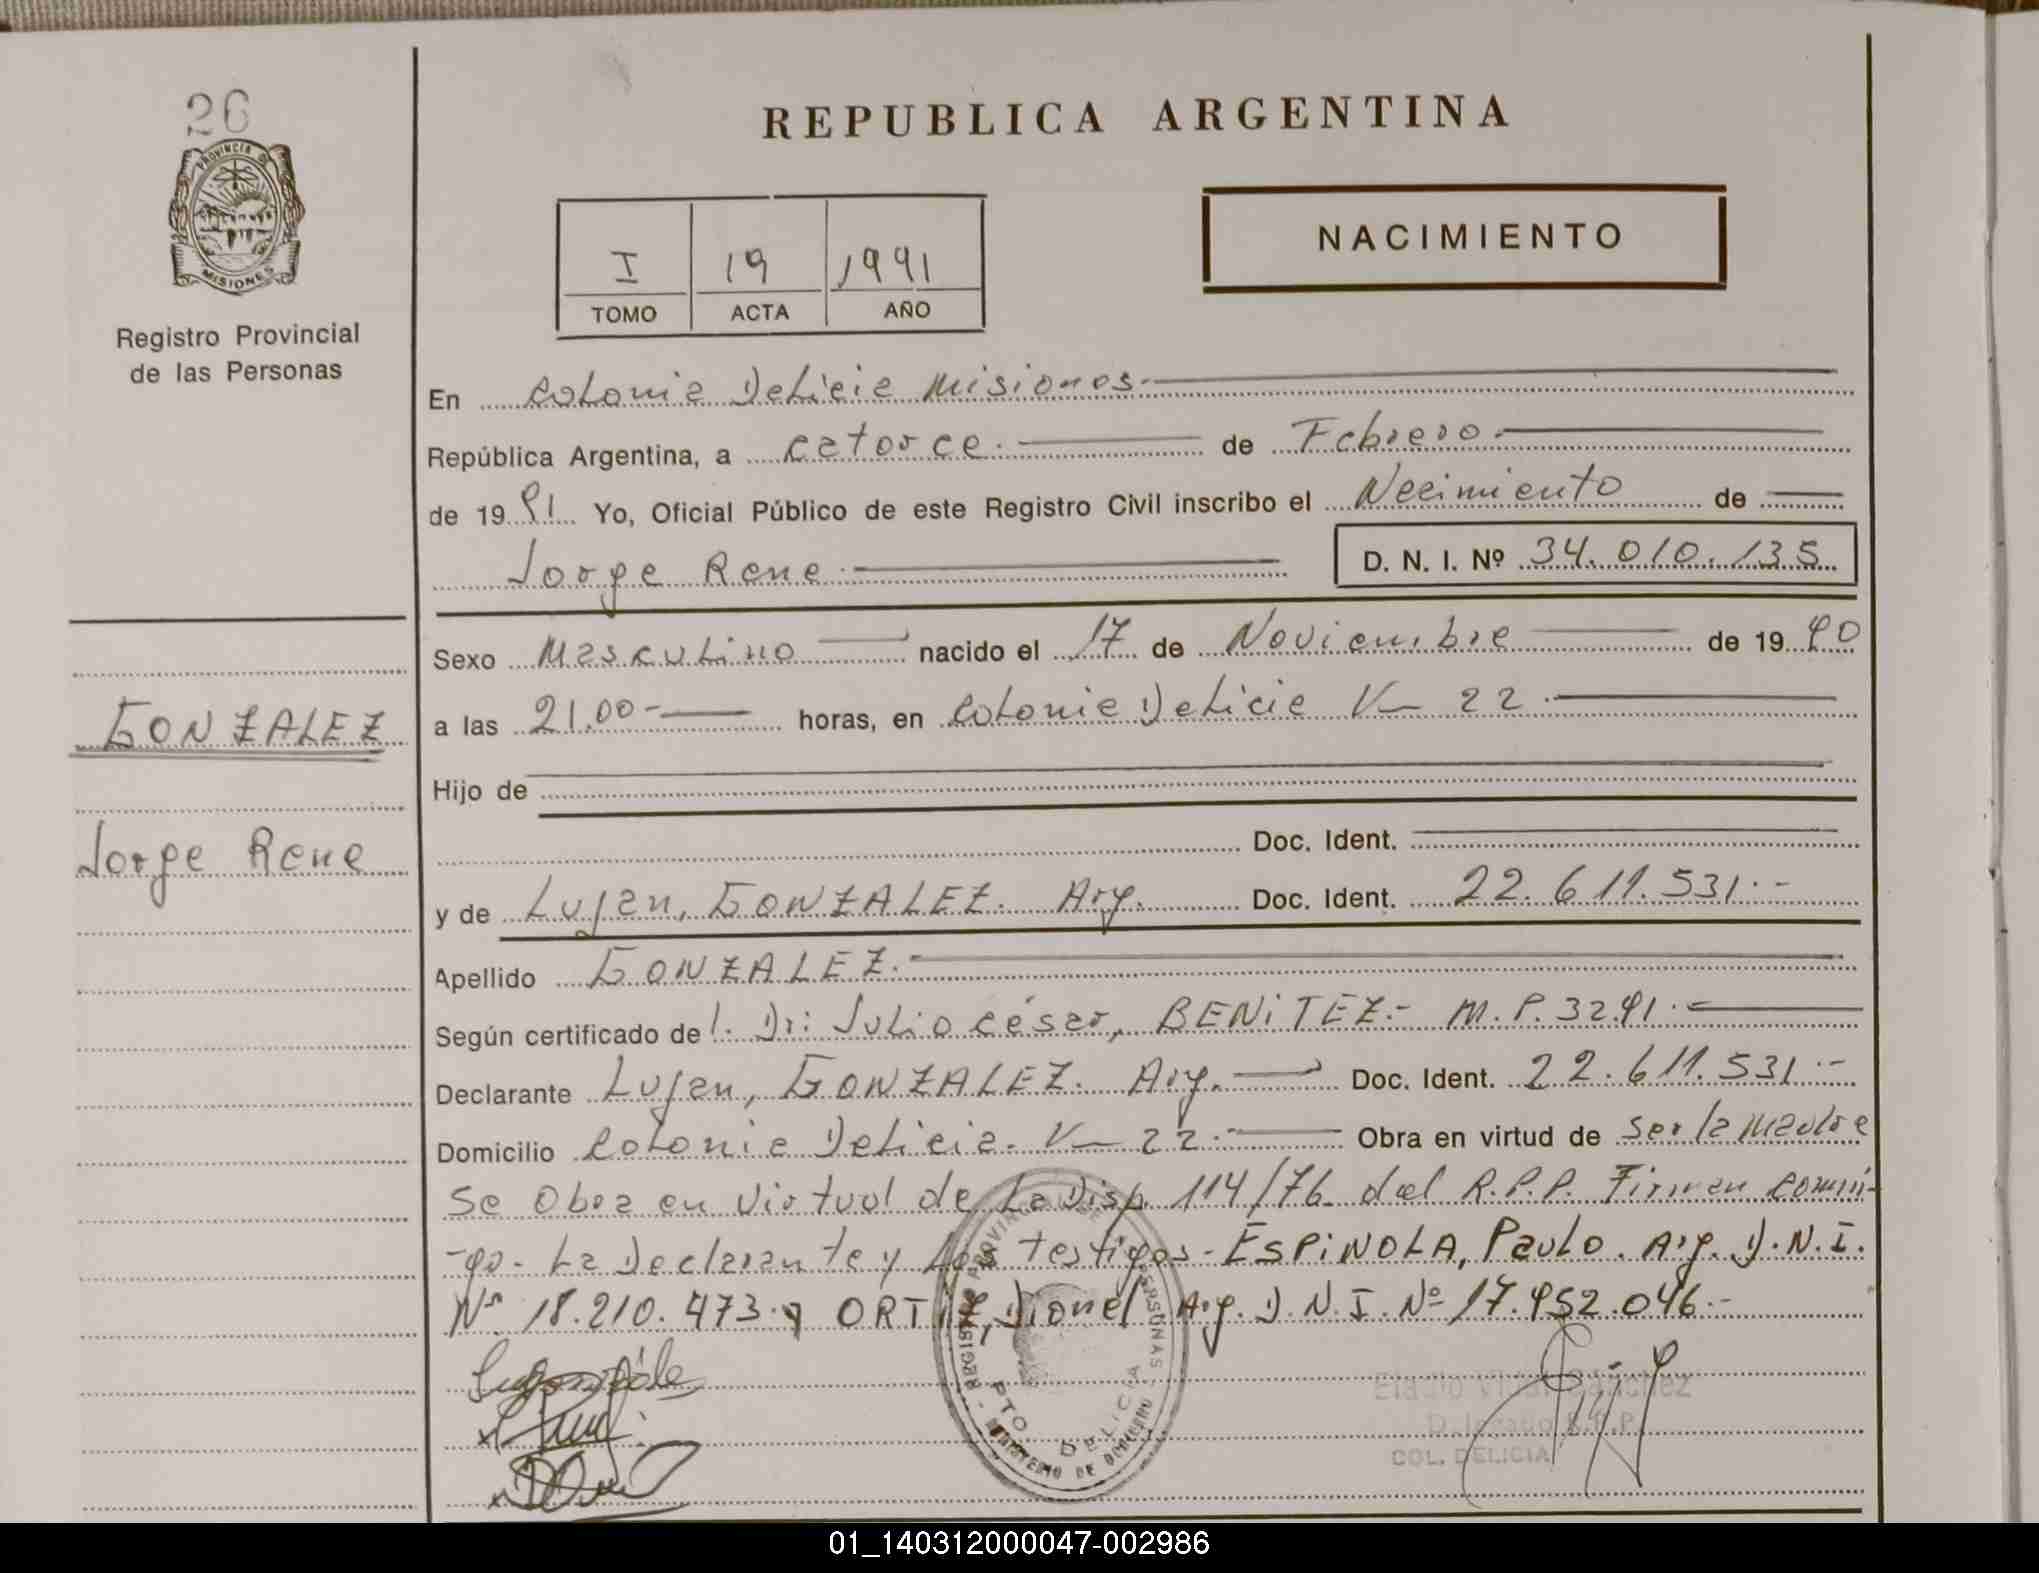 26
PROVINCIA DE
MISIONES
Registro Provincial
de las Personas
REPUBLICA ARGENTINA
I 19 1991
TOMO ACTA AÑO
NACIMIENTO
En Colonia Delicia Misiones.-
República Argentina, a catorce.- de Febrero.-
de 1991 Yo, Oficial Público de este Registro Civil inscribo el Nacimiento de
Jorge Rene.-
D. N. I. Nº 34.010.135
Sexo Masculino nacido el 17 de Noviembre de 1990
a las 21.00- horas, en Colonia Delicia K 22.-
GONZALEZ
Hijo de
Doc. Ident.
Jorge Rene
y de Lujan, GONZALEZ. Arg. Doc. Ident. 22.611.531.-
Apellido GONZALEZ.-
Según certificado de l. Dr: Julio césar, BENiTEZ.- M.P. 3291.-
Declarante Lujan, GONZALEZ. Arg. Doc. Ident. 22.611.531.-
Domicilio Colonia Delicia. K 22.- Obra en virtud de ser la Madre
Se Obra en Virtud de La Disp. 114/76 del R.P.P. Firman conmi-
-go- La Declarante y los testigos- ESPiNOLA, Paulo. Arg. D.N.I.
Nº 18.210.473. y ORTIZ, Dionel Arg. D.N.I. Nº 17.952.046.-
REGISTRO PROVINCIAL DE PERSONAS - MINISTERIO DE GOBIERNO
PTO DELICIA
Eladio Vidal Sánchez
Delegado R.P.P.
COL. DELICIA
01_140312000047-002986